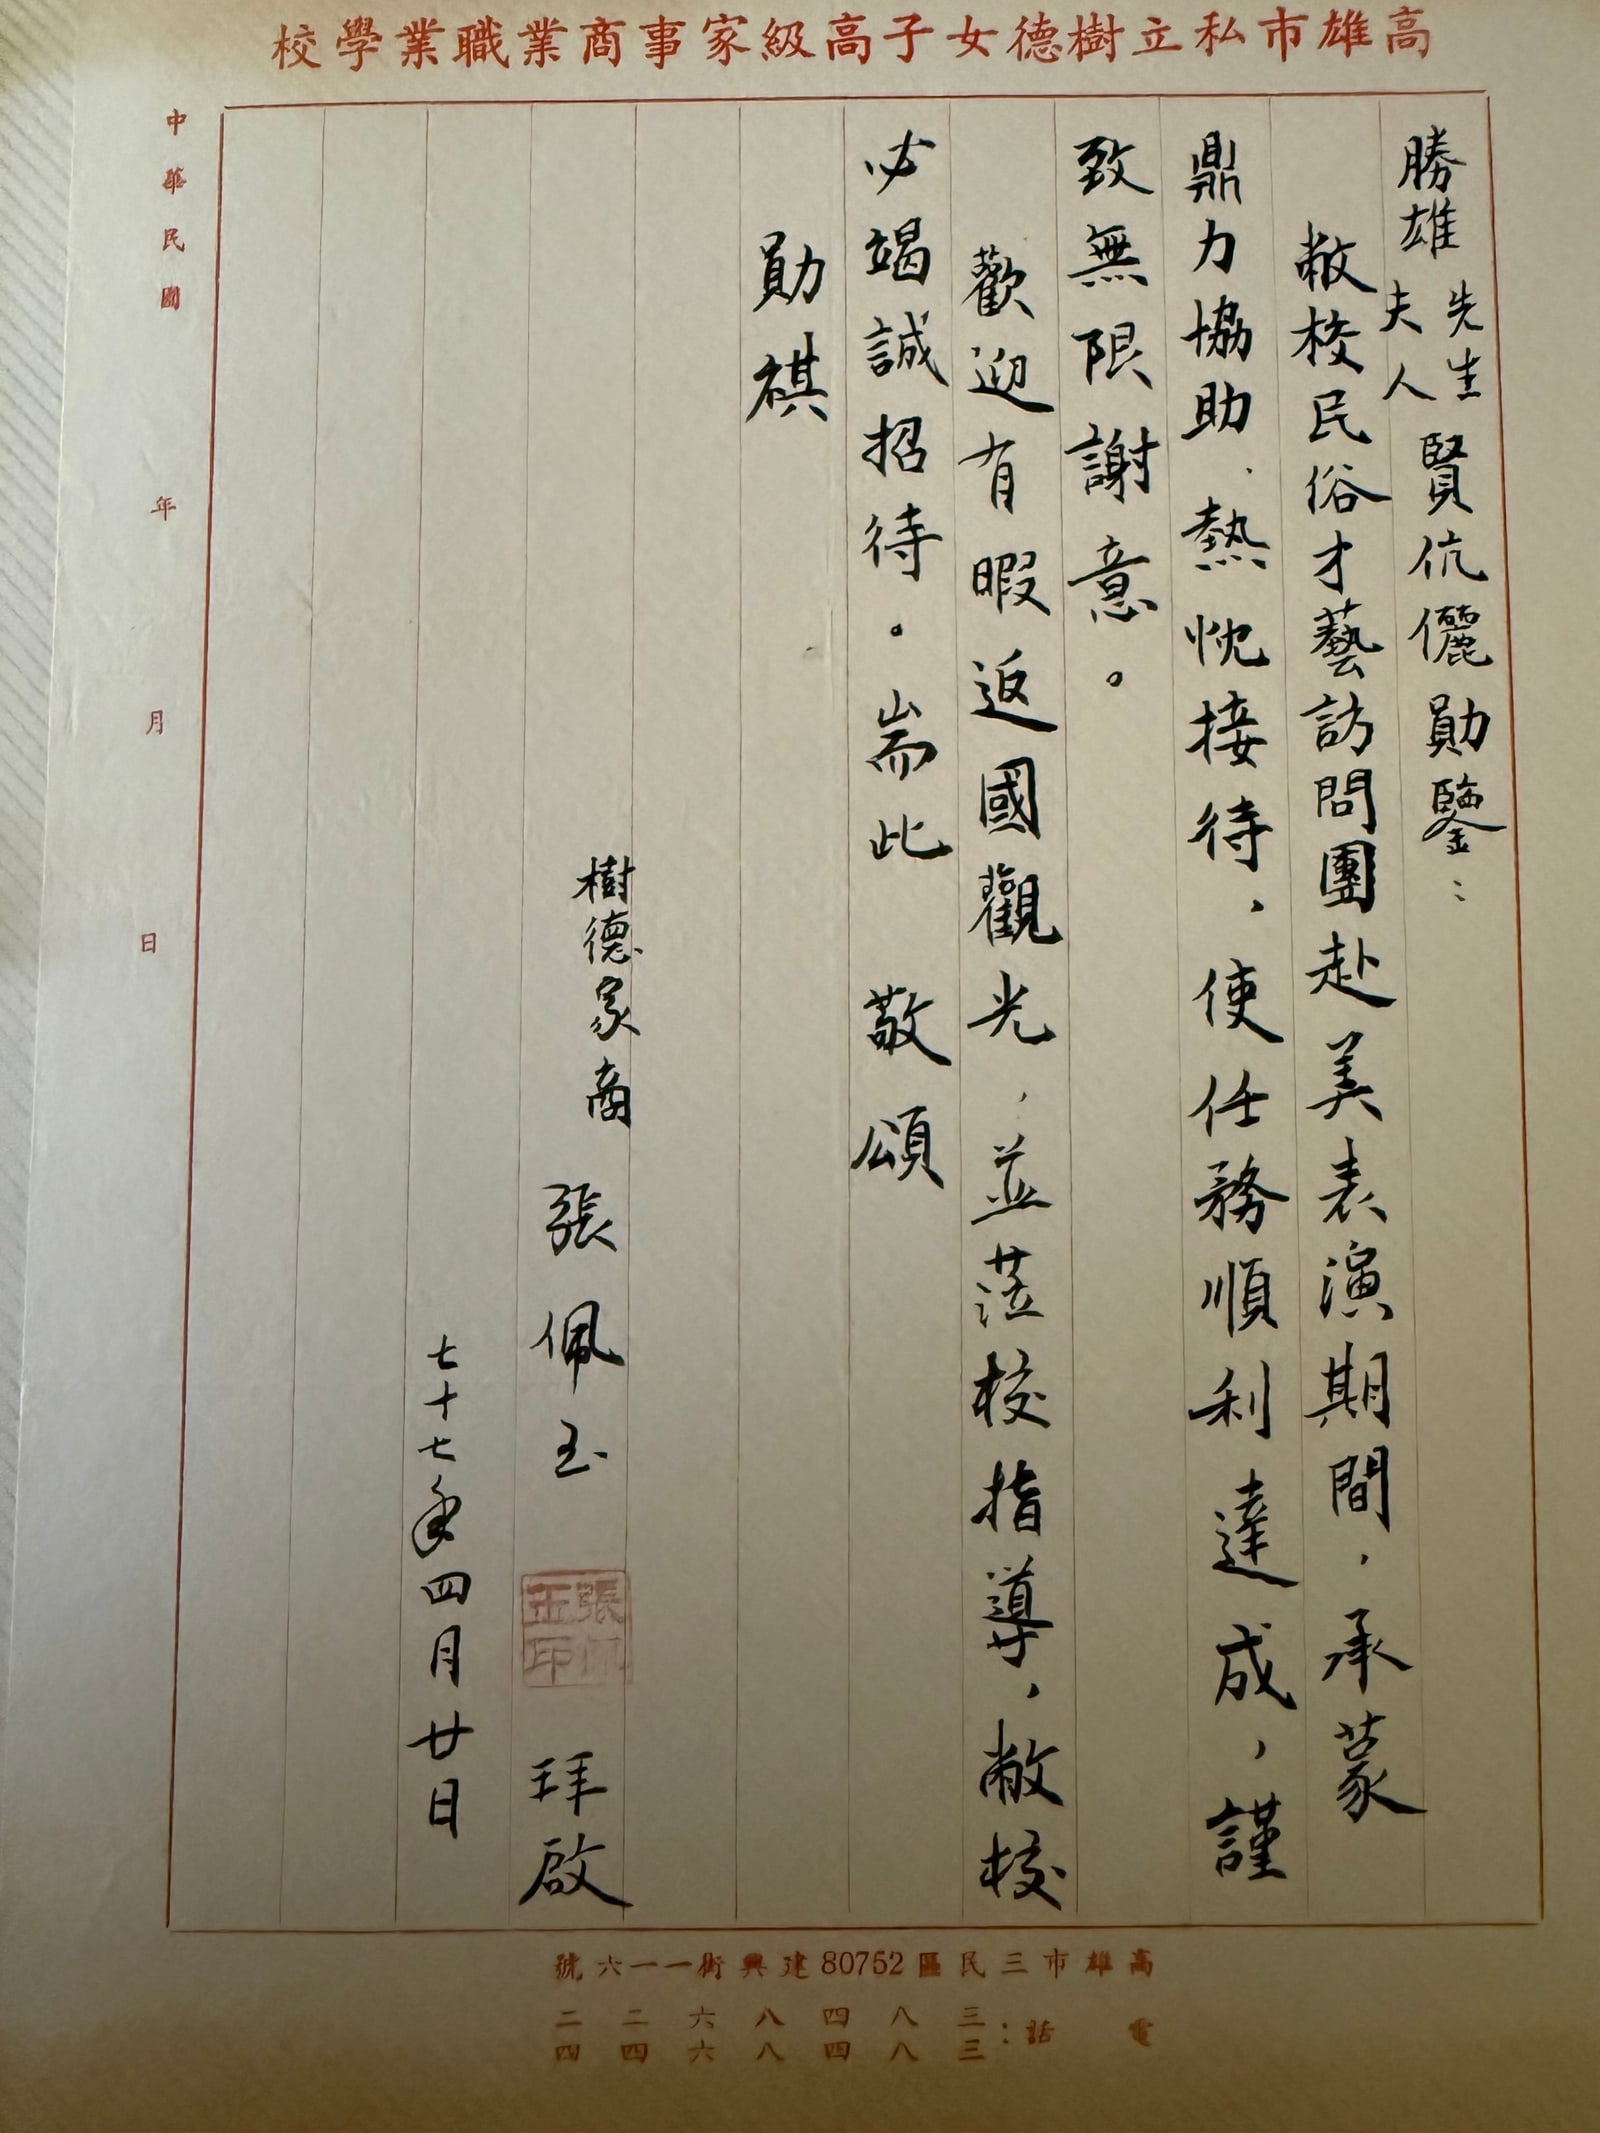 高雄市私立樹德女子高級家事商業職業學校
勝雄先生夫人賢伉儷勛鑒：
敝校民俗才藝訪問團赴美表演期間，承蒙
鼎力協助、熱忱接待，使任務順利達成，謹
致無限謝意。
歡迎有暇返國觀光，並蒞校指導，敝校
必竭誠招待。耑此 敬頌
勛祺
樹德家商 張佩玉 拜啟
張佩玉印
七十七年四月廿日
中華民國 年 月 日
高雄市三民區80752建興街一一六號
電話：三八四八六二二
三八四八六四四